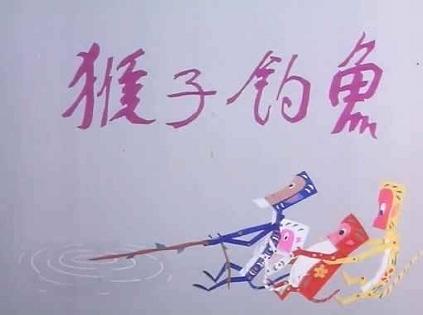 猴子钓魚